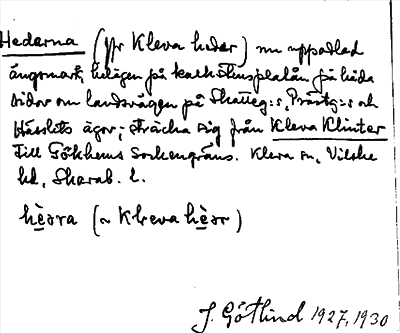 Hederna (för Kleva heder) nu uppodlad
ängsmark, belägen på kalkstensplatån på båda
sidor om landsvägen på Skatteg:s, Prästg:s och
Hässlets ägor; sträcka sig från Kleva Klinter
till Gökhems sockengräns. Kleva sn, Vilske
hd, Skarab. l.
hèsra (~ Kleva hèsr)
J. Götlind 1927, 1930